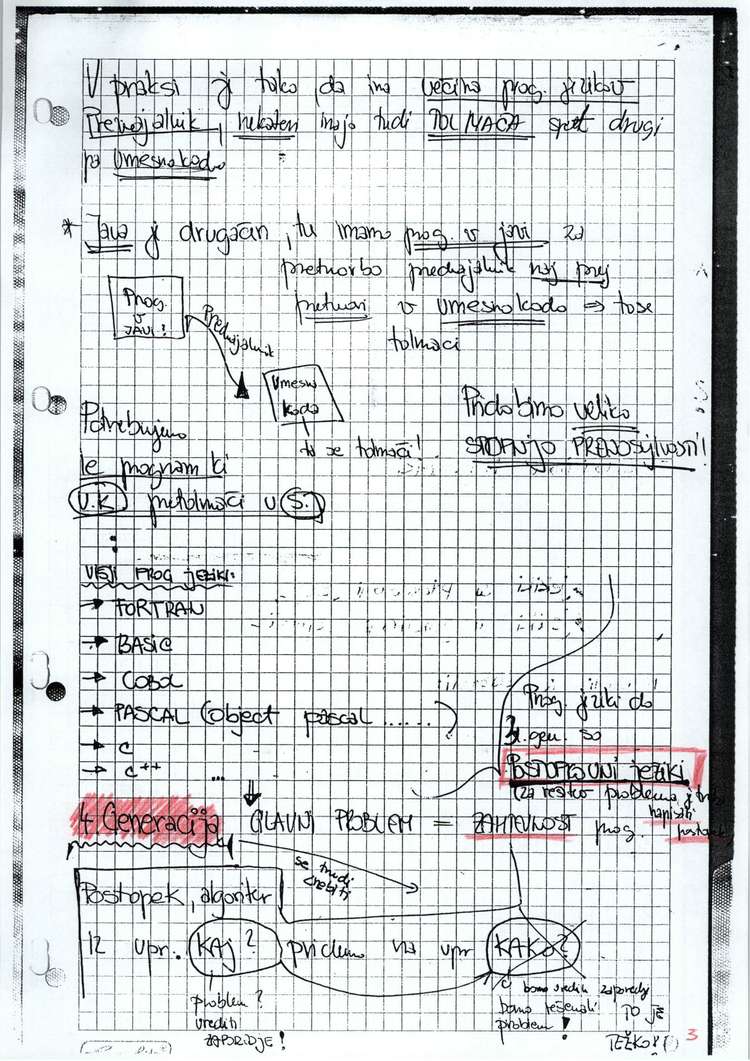 V praksi je tako da ima večina prog. jezikov
Prevajalnik, nekateri imajo tudi TOLMAČA spet drugi
pa Umesno kodo
* Java je drugačen, tu imamo prog. v javi za
pretvorbo prevajalnik naj prej
pretvori v umesno kodo ⇒ to se
tolmači
Prog.
v
JAVI!
Prevajalnik
Umesna
koda
to se tolmači!
Pridobimo veliko
STOPNJO PRENOSLJIVOSTI!
Potrebujemo
le program ki
U.K pretolmači v S.J
VIŠJI PROG JEZIKI:
→ FORTRAN
→ BASIC
→ COBOL
→ PASCAL (object pascal ......)
→ C
→ C++ ...
Prog. jeziki do
3. gen. so
POSTOPKOVNI jeziki
(za rešitev problema je treba
napisati
postopek
4 Generacija GLAVNI PROBLEM = ZAHTEVNOST prog.
se trudi
znebiti
Postopek, algoritem
Iz vpr. KAJ? pridemo na vpr KAKO?
problem?
urediti
ZAPOREDJE!
bomo uredili zaporedje
bomo reševali
problem!
TO JE
TEŽKO!(!)
3